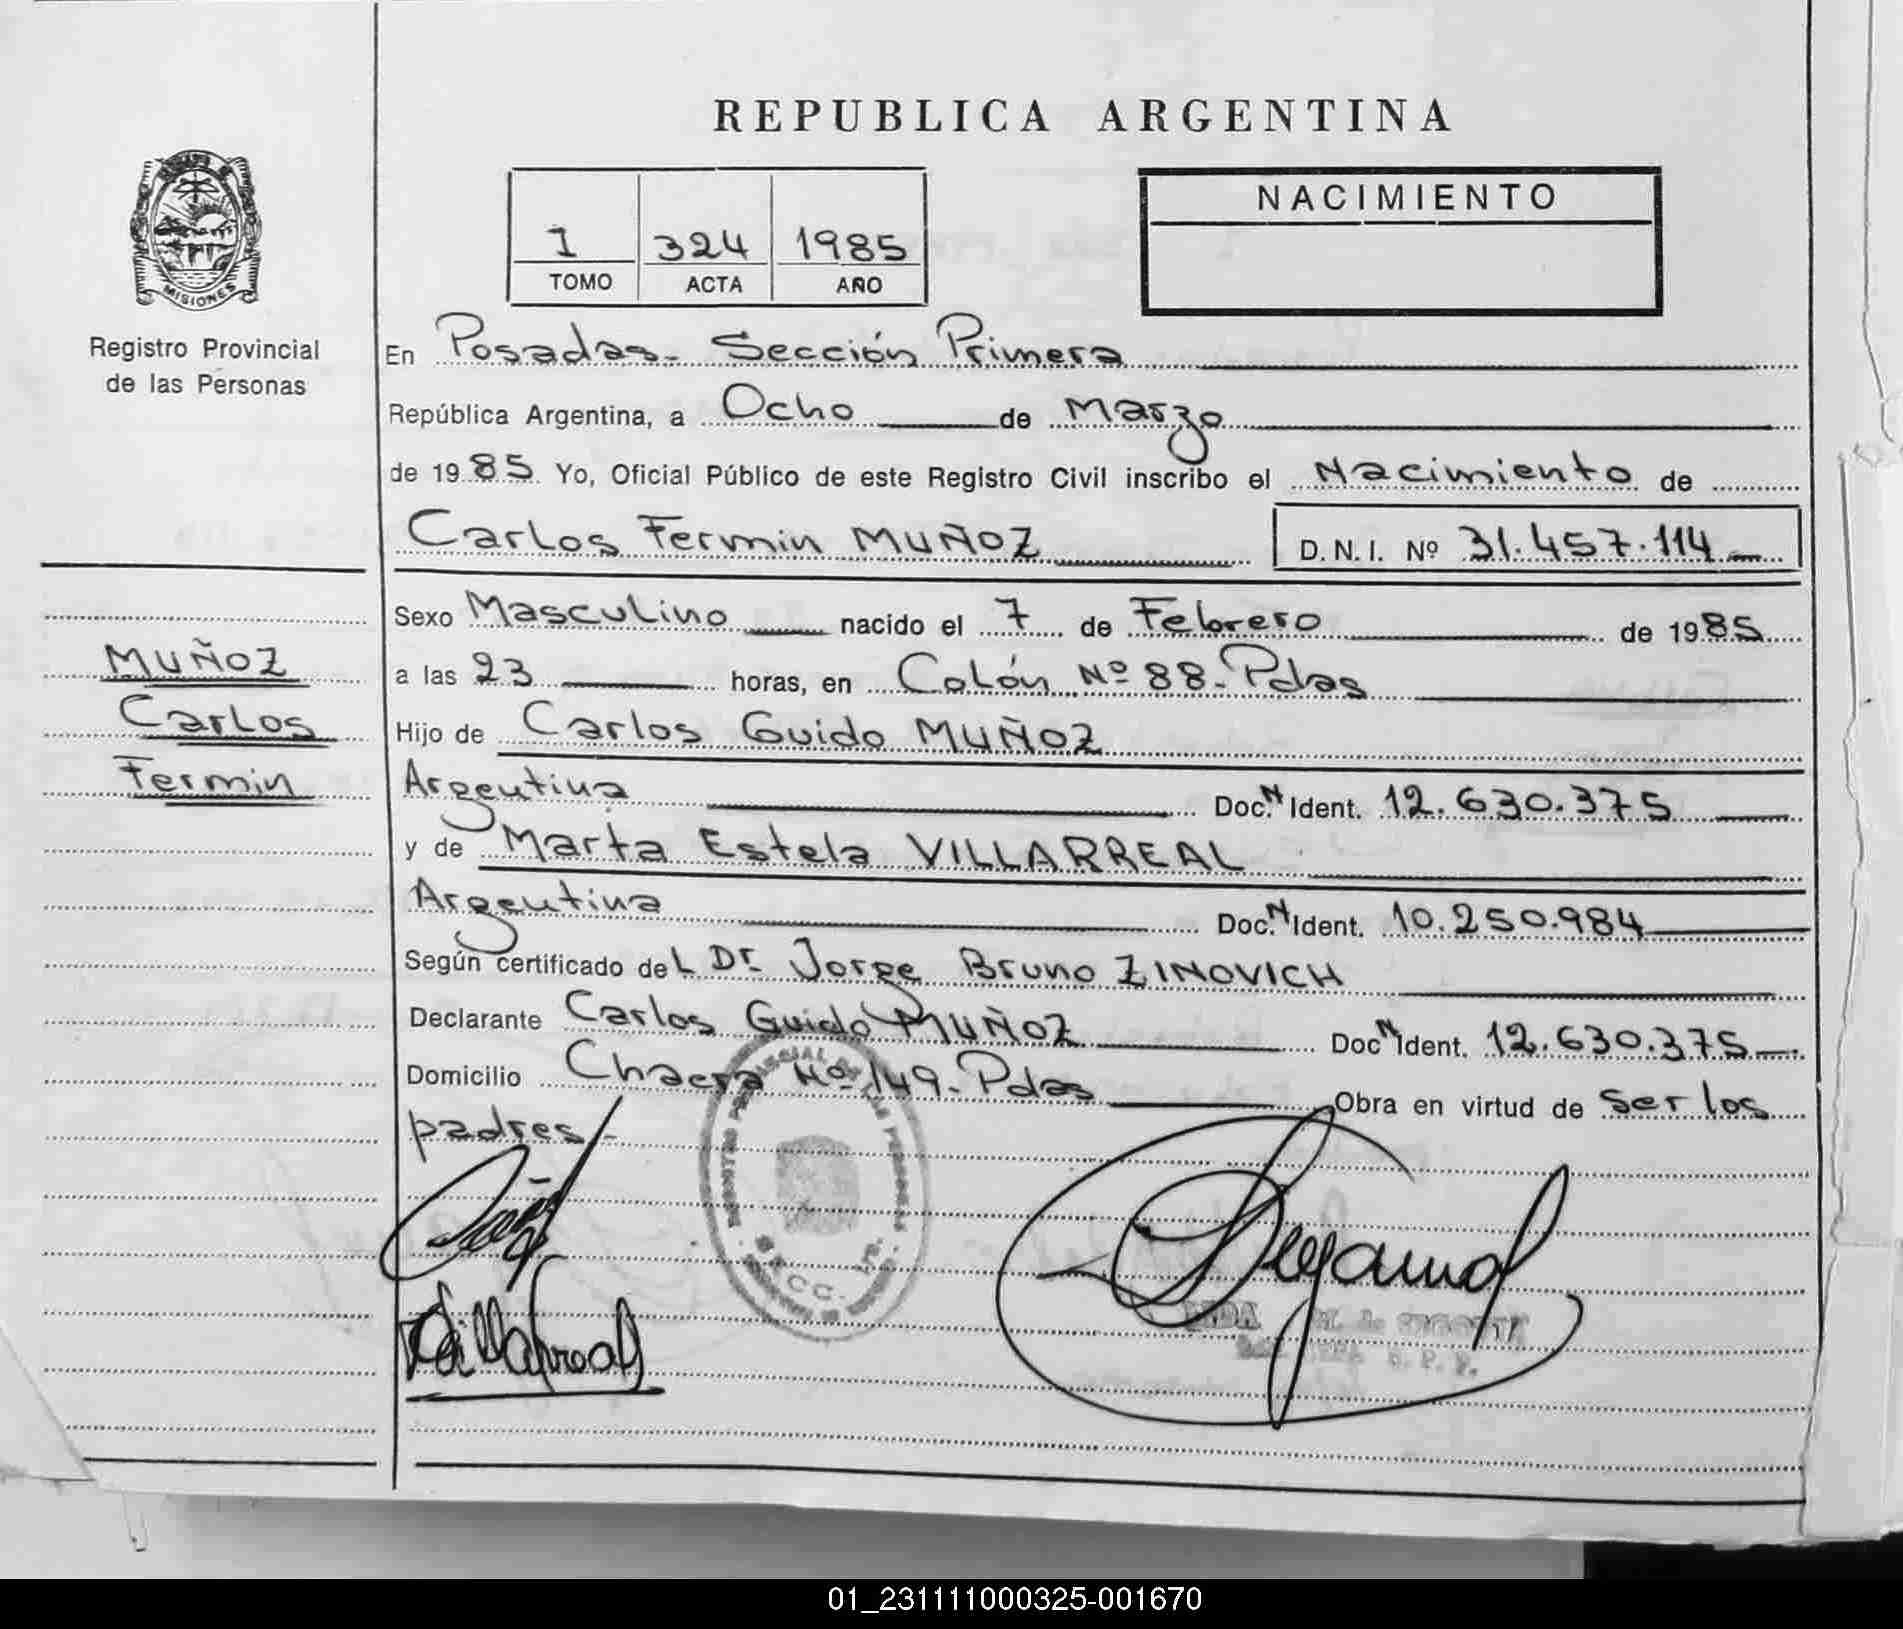 REPUBLICA ARGENTINA
NACIMIENTO
1 324 1985
TOMO ACTA AÑO
MISIONES
Registro Provincial
de las Personas
En Posadas- Sección Primera
República Argentina, a Ocho de Marzo
de 1985 Yo, Oficial Público de este Registro Civil inscribo el Nacimiento de
Carlos Fermin MUÑOZ D.N.I. Nº 31.457.114
Sexo Masculino nacido el 7 de Febrero de 1985
MUÑOZ
Carlos
Fermin
a las 23 horas, en Colón Nº 88- Pdas
Hijo de Carlos Guido MUÑOZ
Argentina Doc. N Ident. 12.630.375
y de Marta Estela VILLARREAL
Argentina Doc. N Ident. 10.250.984
Según certificado del Dr. Jorge Bruno ZINOVICH
Declarante Carlos Guido MUÑOZ Doc N Ident. 12.630.375
Domicilio Chacra Nº 149- Pdas Obra en virtud de ser los
padres.-
Villarreal
01_231111000325-001670